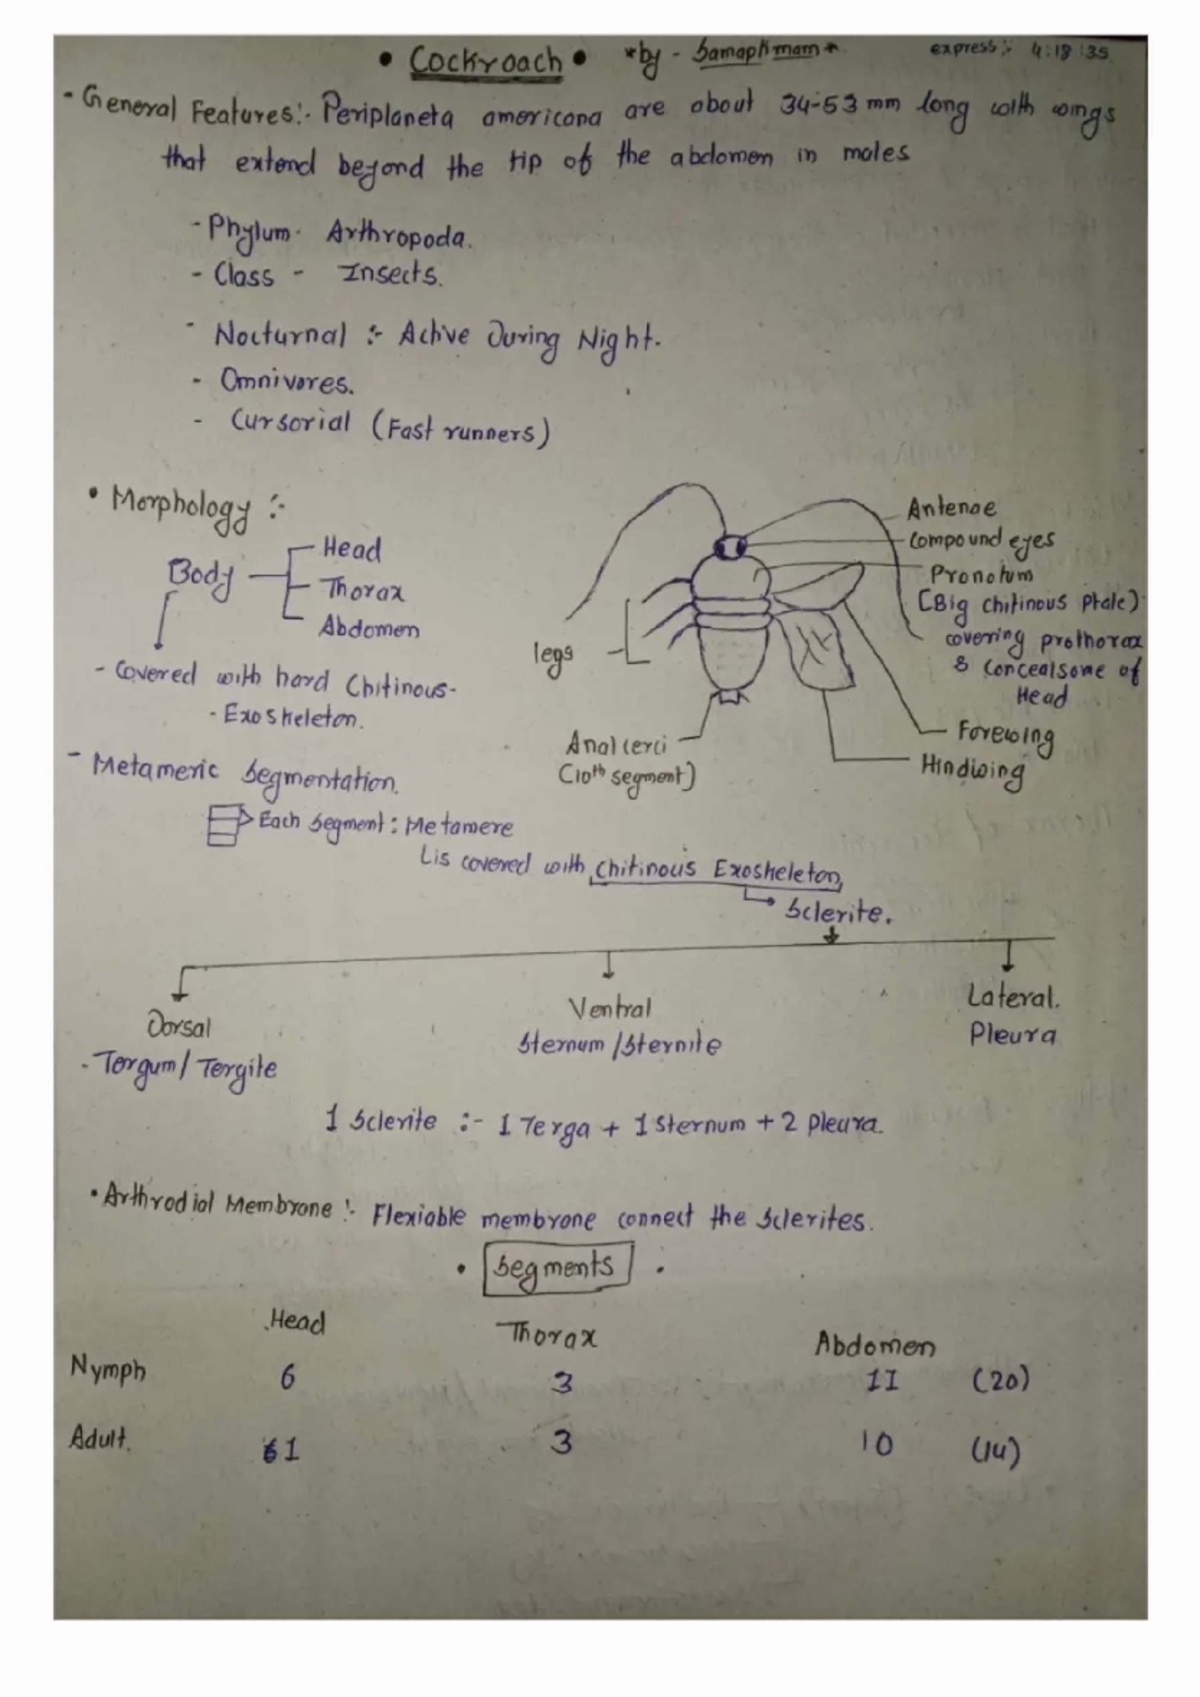 • Cockroach • *by - Samaptimam* express :- 4:18:35
- General Features:- Periplaneta americana are about 34-53 mm long with wings
that extend beyond the tip of the abdomen in males
- Phylum- Arthropoda.
- Class - Insects.
- Nocturnal :- Active During Night.
- Omnivores.
- Cursorial (Fast runners)
• Morphology :-
Body
Head
Thorax
Abdomen
- Covered with hard Chitinous-
- Exoskeleton.
Antenae
Compound eyes
Pronotum
[Big chitinous Plate)
covering prothorax
& Concealsome of
Head
legs
Forewing
Hindwing
Anal cerci
(10th segment)
- Metameric Segmentation.
Each Segment: Metamere
Lis covered with Chitinous Exoskeleton,
Sclerite.
Dorsal
- Tergum/Tergite
Ventral
Sternum /Sternite
Lateral.
Pleura
1 Sclerite :- 1 Terga + 1 Sternum + 2 Pleura.
• Arthrodial Membrane :- Flexiable membrane connect the Sclerites.
• Segments •
Head Thorax Abdomen
Nymph 6 3 11 (20)
Adult. 1 3 10 (14)